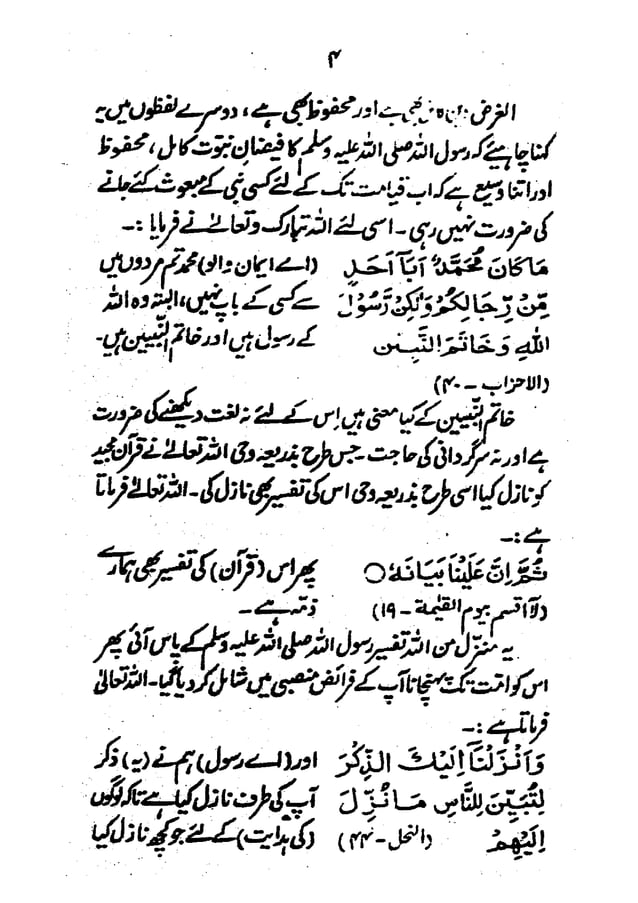 ۴
الغرض بھی ہے اور محفوظ بھی ہے، دوسرے لفظوں میں یہ
کہنا چاہیئے کہ رسول اللہ صلی اللہ علیہ وسلم کا فیضانِ نبوت کامل، محفوظ
اور اتنا وسیع ہے کہ اب قیامت تک کے لئے کسی نبی کے مبعوث کئے جانے
کی ضرورت نہیں رہی۔ اسی لئے اللہ تبارک و تعالےٰ نے فرمایا :۔
مَا كَانَ مُحَمَّدٌ اَبَآ اَحَدٍ (اے ایمان والو) محمد تم مردوں میں
مِّنْ رِّجَالِكُمْ وَلٰكِنْ رَّسُوْلَ سے کسی کے باپ نہیں، البتہ وہ اللہ
اللهِ وَخَاتَمَ النَّبِيّٖنَ کے رسول ہیں اور خاتم النّبیین ہیں۔
(الاحزاب - ۴۰)
خاتم النّبیین کے کیا معنی ہیں اِس کے لئے نہ لغت دیکھنے کی ضرورت
ہے اور نہ سرگردانی کی حاجت۔ جس طرح بذریعہ وحی اللہ تعالےٰ نے قرآن مجید
کو نازل کیا اسی طرح بذریعہ وحی اس کی تفسیر بھی نازل کی۔ اللہ تعالےٰ فرماتا
ہے :۔
ثُمَّ اِنَّ عَلَيْنَا بَيَانَهٗ ○ پھر اس (قرآن) کی تفسیر بھی ہمارے
(لآ اقسم بیوم القیٰمة - ۱۹) ذمّہ ہے۔
یہ منزّل من اللہ تفسیر رسول اللہ صلی اللہ علیہ وسلم کے پاس آئی پھر
اس کو امت تک پہنچانا آپ کے فرائض منصبی میں شامل کر دیا گیا۔ اللہ تعالیٰ
فرماتا ہے :۔
وَاَنْزَلْنَآ اِلَيْكَ الذِّكْرَ اور (اے رسول) ہم نے (یہ) ذکر
لِتُبَيِّنَ لِلنَّاسِ مَا نُزِّلَ آپ کی طرف نازل کیا ہے تاکہ لوگوں
اِلَيْهِمْ (النحل - ۴۴) (کی ہدایت) کے لئے جو کچھ نازل کیا